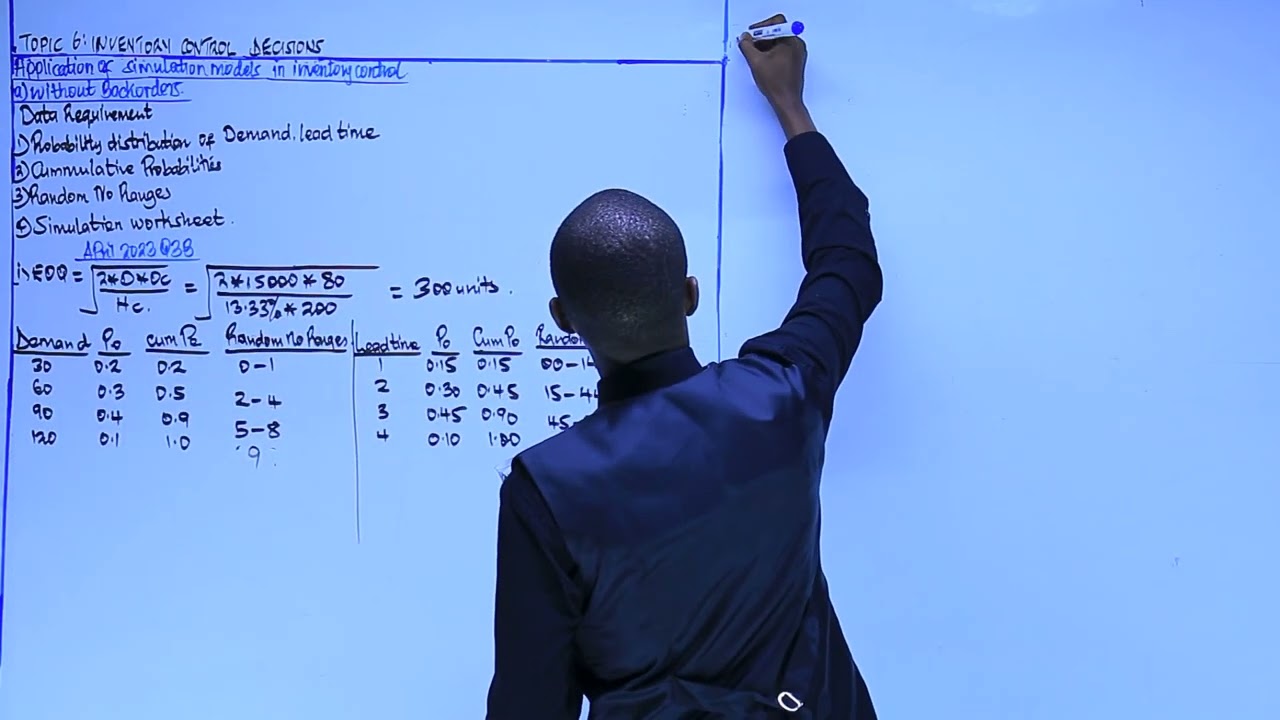 TOPIC 6: INVENTORY CONTROL DECISIONS
Application of simulation models in inventory control
a) without Backorders.
Data Requirement
1) Probability distribution of Demand, lead time
2) Cummulative Probabilities
3) Random No Ranges
4) Simulation worksheet.
April 2023 Q3B
i) EOQ = √2*D*Oc/Hc. = √2*15000*80/13.33%*200 = 300 units.
Demand Po cum Po Random No Ranges
30 0.2 0.2 0-1
60 0.3 0.5 2-4
90 0.4 0.9 5-8
120 0.1 1.0 9
Leadtime Po Cum Po Random
1 0.15 0.15 00-14
2 0.30 0.45 15-44
3 0.45 0.90 45-
4 0.10 1.00